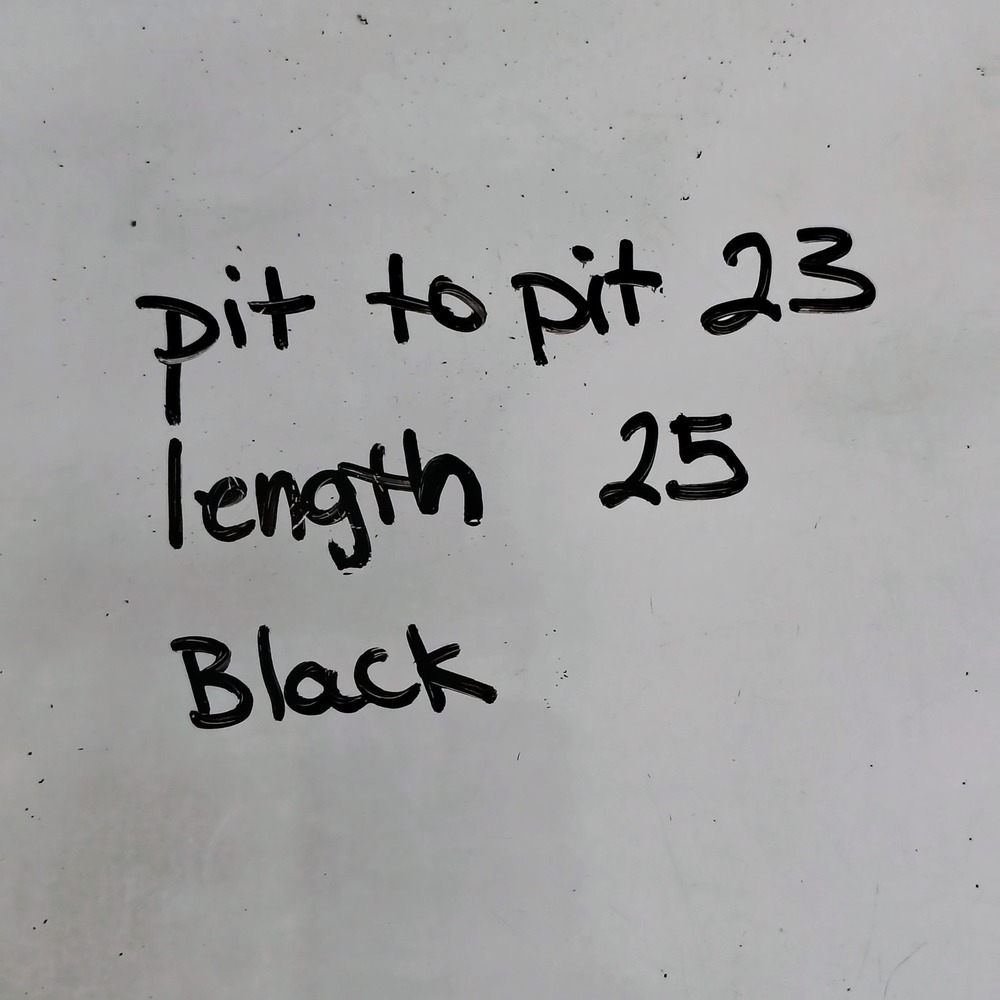 pit to pit 23
length 25
Black